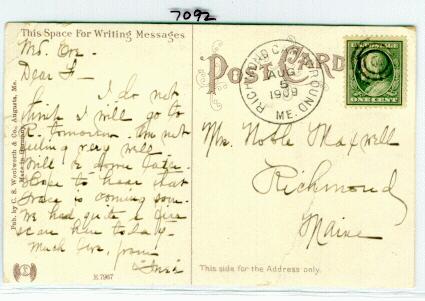 7092
This Space For Writing Messages
POST CARD
Wed. Eve.
Dear F-
I do not
think I will go to
R. tomorrow. Am not
feeling very well.
Will be down later.
Hope to hear that
Grace is coming soon.
We had quite a fire
scare here today.
Much love, from
Pub. by C. S. Woolworth & Co., Augusta, Me.
Made in Germany
E 7967
RICHMOND CAMP GROUND
AUG
5
1909
ME.
ONE CENT
Mr. Noble Maxwell
Richmond
Maine
This side for the Address only.